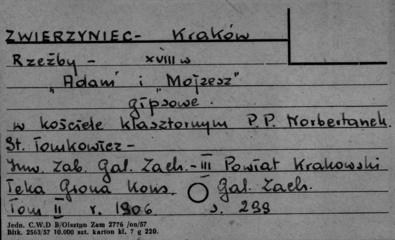 ZWIERZYNIEC - Kraków
Rzeźby - XVIII w
"Adam" i "Mojżesz"
gipsowe.
w kościele klasztornym P.P. Norbertanek.
St. Tomkowicz -
Inw. Zab. Gal. Zach. - III Powiat Krakowski
Teka Grona Kons. Gal. Zach.
Tom II r. 1906 s. 299
Jedn. C.W.D B/Olsztyn Zam 2776 /on/57
Bltk. 2563/57 10.000 szt. karton kl. 7 g 220.